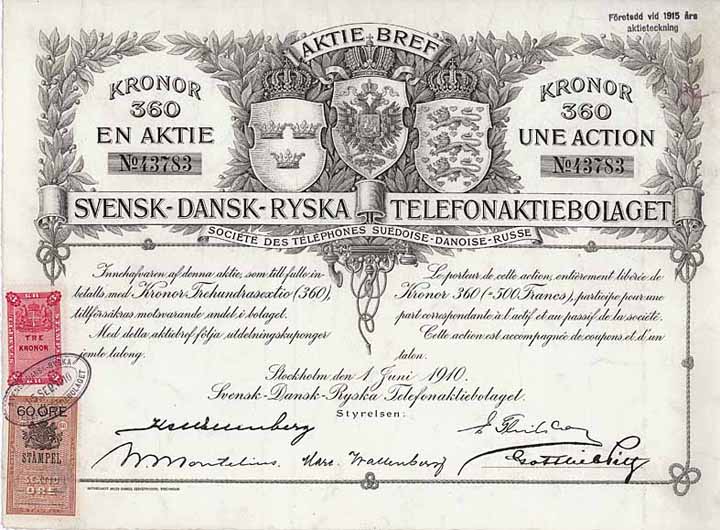 Företedd vid 1915 års
aktieteckning
AKTIE BREF
KRONOR
360
EN AKTIE
No 43783
KRONOR
360
UNE ACTION
No 43783
SVENSK-DANSK-RYSKA TELEFONAKTIEBOLAGET
SOCIÉTÉ DES TÉLÉPHONES SUÉDOISE-DANOISE-RUSSE
Innehafvaren af denna aktie, som till fullo in-
betalts med Kronor Trehundrasextio (360),
tillförsäkras motsvarande andel i bolaget.
Med detta aktiebref följa utdelningskuponger
jemte talong.
Le porteur de cette action, entièrement libérée de
Kronor 360 (=500 Francs), participe pour une
part correspondante à l'actif et au passif de la société.
Cette action est accompagnée de coupons et d'un
talon.
Stockholm den 1 Juni 1910.
Svensk-Dansk-Ryska Telefonaktiebolaget.
Styrelsen:
K A Wallenberg
W Montelius
Marc. Wallenberg
TRE
KRONOR
SEP. 1910
60 ÖRE
STÄMPEL
SEXTIO
ÖRE